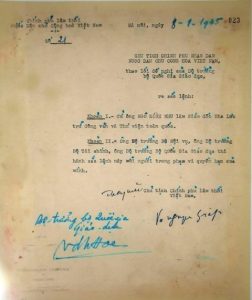 CHÍNH PHỦ LÂM THỜI
Việt Nam Dân chủ Cộng hoà
Hà nội, 8-9-1945
Số 21
CHỦ TỊCH CHÍNH PHỦ NHÂN DÂN
NƯỚC DÂN CHỦ CỘNG HOÀ VIỆT NAM,
theo lời đề nghị của Bộ trưởng
bộ Quốc Gia Giáo Dục,
ra sắc lệnh:
Khoản I.- cử ông
trữ Công văn và Thư viện toàn quốc.
Khoản II.- ông Bộ trưởng Bộ Nội vụ, ông Bộ trưởng
Bộ Tài chính, ông Bộ trưởng Bộ Quốc Gia Giáo dục thi
hành sắc lệnh này mỗi người trong phạm vi quyền hạn của
mình.
Chủ tịch Chính phủ lâm thời
Việt Nam,
Bộ trưởng bộ Quốc gia
Giáo-dục
Võ nguyên Giáp